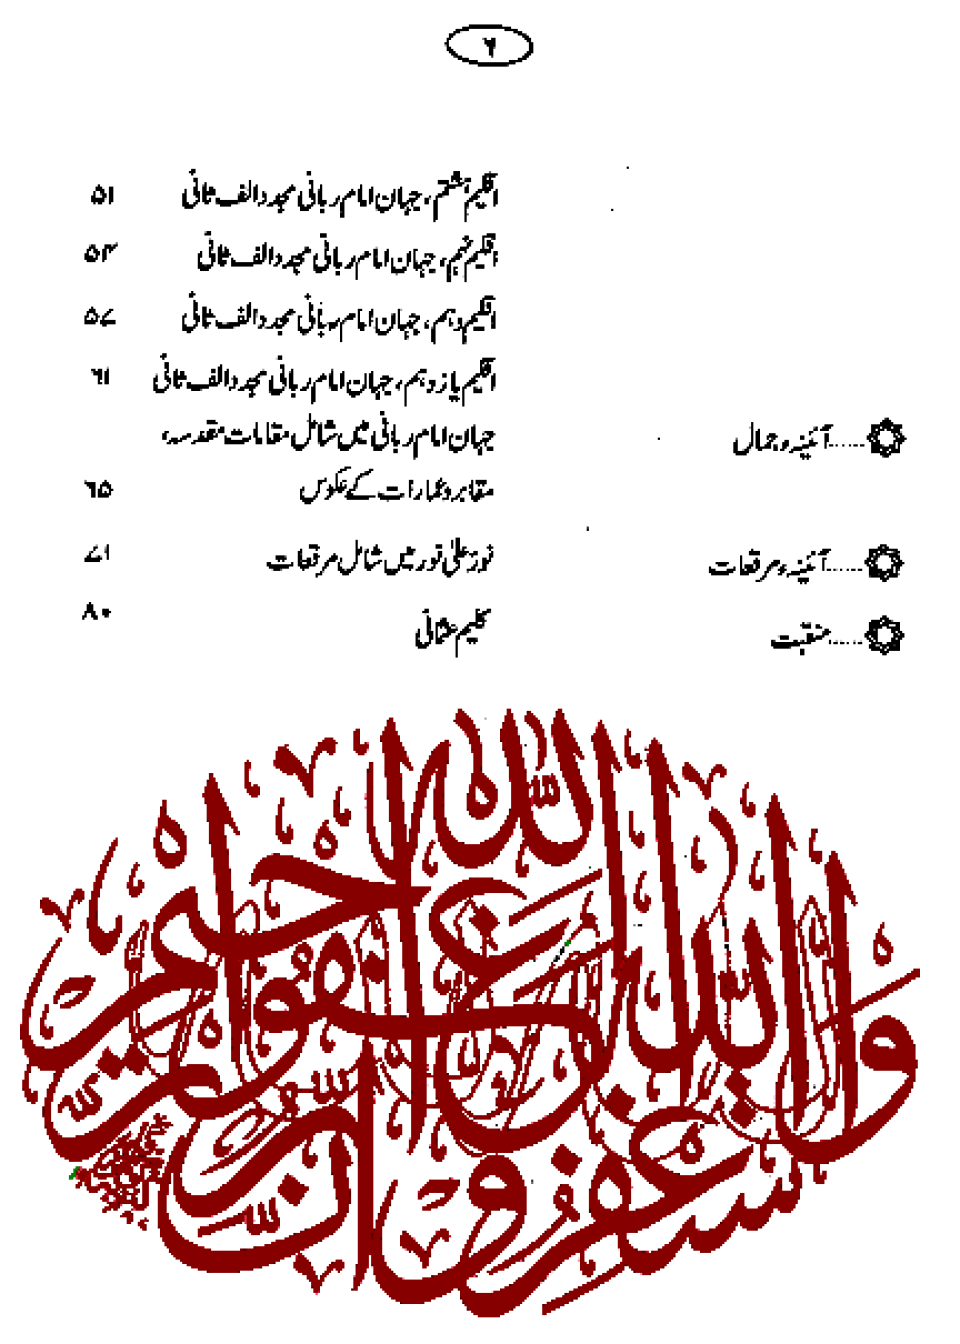 ۲
اقلیم ہشتم، جہان امام ربانی مجدد الف ثانی ۵۱
اقلیم نہم، جہان امام ربانی مجدد الف ثانی ۵۴
اقلیم دہم، جہان امام ربانی مجدد الف ثانی ۵۷
اقلیم یازدہم، جہان امام ربانی مجدد الف ثانی ۶۱
......آئینۂ جمال جہان امام ربانی میں شامل مقامات مقدسہ،
مقابر و عمارات کے عکوس ۶۵
......آئینۂ مرقعات نورٌ علیٰ نور میں شامل مرقعات ۷۱
......منقبت کلیم عثمانی ۸۰
واستغفروا الله إن الله غفور رحيم